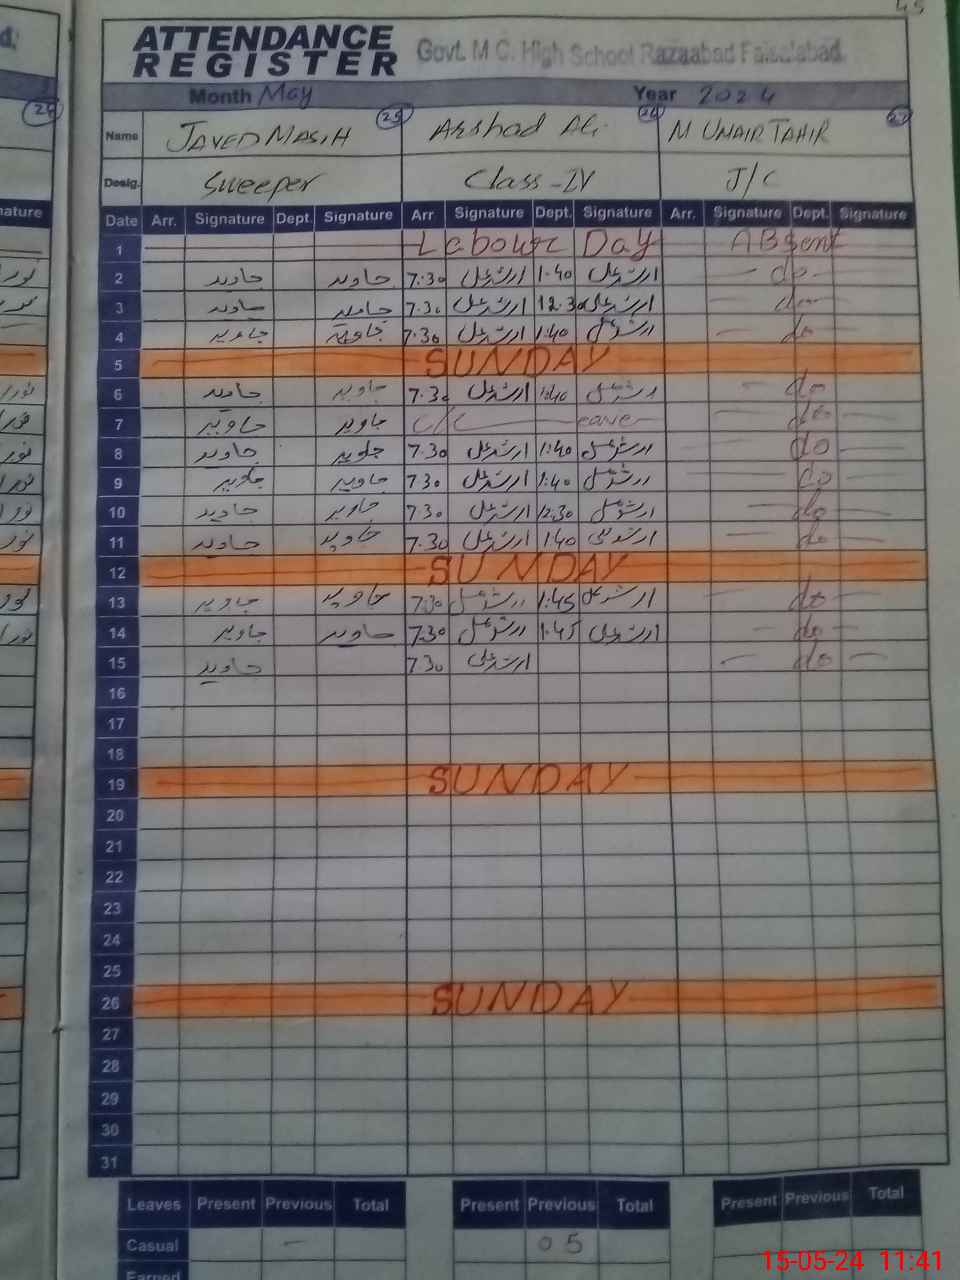 45
ATTENDANCE
REGISTER Govt. M C. High School Razaabad Faisalabad.
Month May Year 2024
Name JAVED MASIH 25 Arshad Ali 26 M UMAIR TAHIR 27
Desig. Sweeper Class-IV J/C
Date Arr. Signature Dept. Signature Arr Signature Dept. Signature Arr. Signature Dept. Signature
1 Labour Day ABsent
2 جاوید جاوید 7:30 ارشد علی 1:40 ارشد علی do
3 جاوید جاوید 7:30 ارشد علی 12:30 ارشد علی do
4 جاوید جاوید 7:30 ارشد علی 1:40 ارشد علی do
5 SUNDAY
6 جاوید جاوید 7:30 ارشد علی 1:40 ارشد علی do
7 جاوید جاوید C/L eave do
8 جاوید جاوید 7:30 ارشد علی 1:40 ارشد علی do
9 جاوید جاوید 7:30 ارشد علی 1:40 ارشد علی do
10 جاوید جاوید 7:30 ارشد علی 12:30 ارشد علی do
11 جاوید جاوید 7:30 ارشد علی 1:40 ارشد علی do
12 SUNDAY
13 جاوید جاوید 7:30 ارشد علی 1:45 ارشد علی do
14 جاوید جاوید 7:30 ارشد علی 1:45 ارشد علی do
15 جاوید 7:30 ارشد علی do
16
17
18
19 SUNDAY
20
21
22
23
24
25
26 SUNDAY
27
28
29
30
31
Leaves Present Previous Total Present Previous Total Present Previous Total
Casual - 05
Earned
15-05-24 11:41